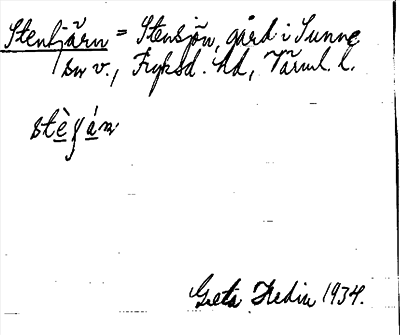 Stentjärn = Stensjön, gård i Sunne
sn v., Fryksd. hd, Värml. l.
stèʃán
Greta Hedin 1934.